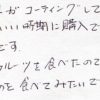 がコーティングして
いい時期に購入で
です。
フルーツを食べたので
のと食べてみたいで